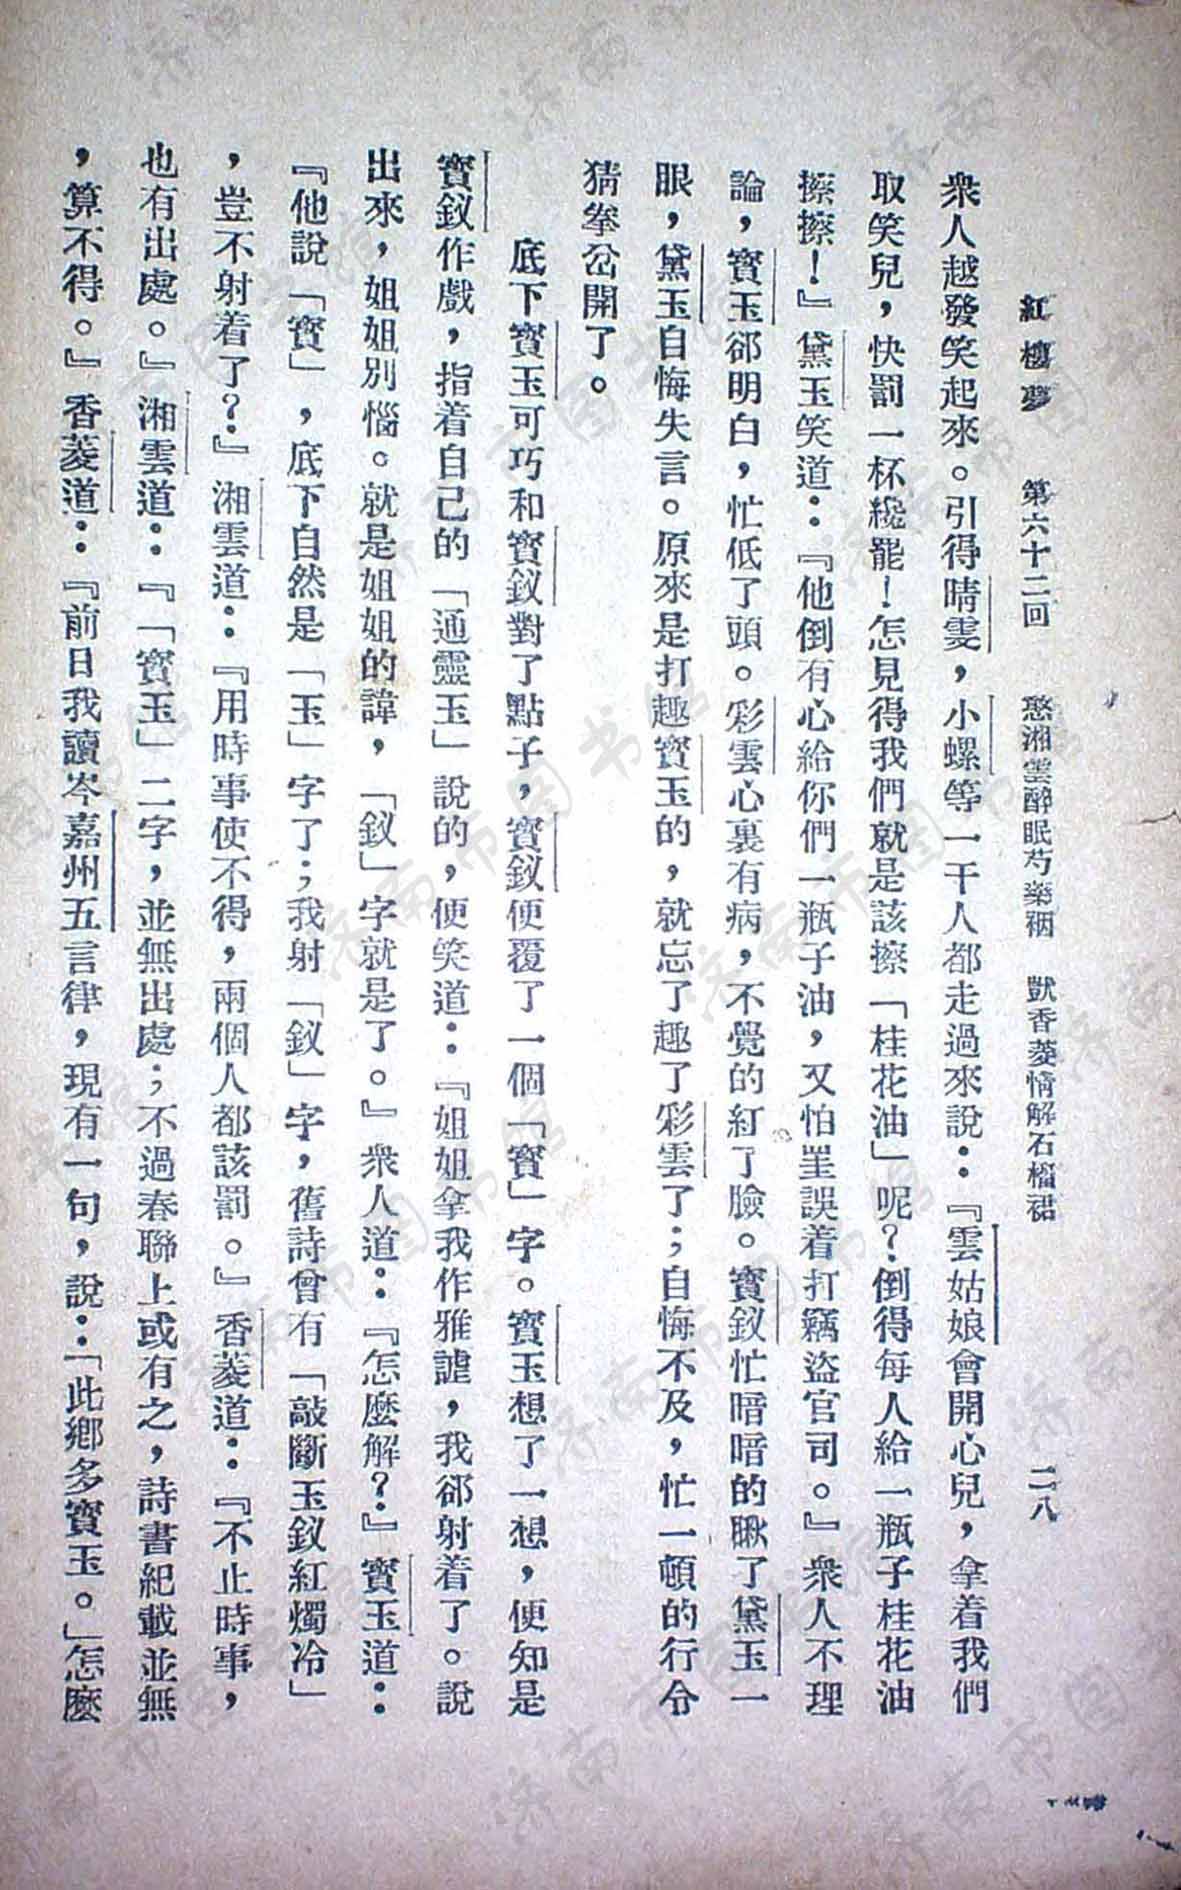 紅樓夢　第六十二回　憨湘雲醉眠芍藥裀　獃香菱情解石榴裙　二八
衆人越發笑起來。引得晴雯，小螺等一干人都走過來說：『雲姑娘會開心兒，拿着我們
取笑兒，快罰一杯纔罷！怎見得我們就是該擦「桂花油」呢？倒得每人給一瓶子桂花油
擦擦！』黛玉笑道：『他倒有心給你們一瓶子油，又怕罣誤着打竊盜官司。』衆人不理
論，寶玉郤明白，忙低了頭。彩雲心裏有病，不覺的紅了臉。寶釵忙暗暗的瞅了黛玉一
眼，黛玉自悔失言。原來是打趣寶玉的，就忘了趣了彩雲了；自悔不及，忙一頓的行令
猜拳岔開了。
底下寶玉可巧和寶釵對了點子，寶釵便覆了一個「寶」字。寶玉想了一想，便知是
寶釵作戲，指着自己的「通靈玉」說的，便笑道：『姐姐拿我作雅謔，我郤射着了。說
出來，姐姐別惱。就是姐姐的諱，「釵」字就是了。』衆人道：『怎麼解？』寶玉道：
『他說「寶」，底下自然是「玉」字了；我射「釵」字，舊詩曾有「敲斷玉釵紅燭冷」
，豈不射着了？』湘雲道：『用時事使不得，兩個人都該罰。』香菱道：『不止時事，
也有出處。』湘雲道：『「寶玉」二字，並無出處；不過春聯上或有之，詩書紀載並無
，算不得。』香菱道：『前日我讀岑嘉州五言律，現有一句，說：「此鄉多寶玉。」怎麼